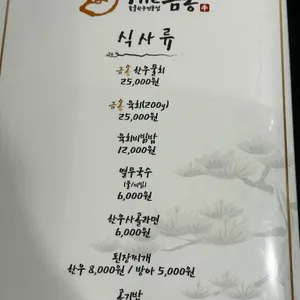 식사류
금혼 한우물회
25,000원
금혼 육회(200g)
25,000원
육회비빔밥
12,000원
열무국수
(물/비빔)
6,000원
한우사골라면
6,000원
된장찌개
한우 8,000원 / 방아 5,000원
공기밥